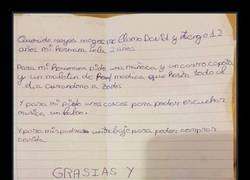 Queridos reyes magos me llamo David y tengo 12
años mi hermana Leila 2 años
Para mi hermana pido una muñeca y un carro capota
y un maletin de medica que hasta todo el
dia curandono a todos
Y para mi pido unos cascos para poder escuchar
musica un beso.
Y para mis padres un trabajo para poder comprar
comida
GRASIAS Y